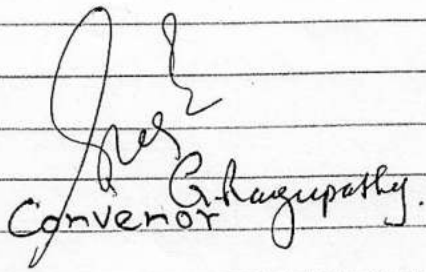 G. Ragupathy.
Convenor